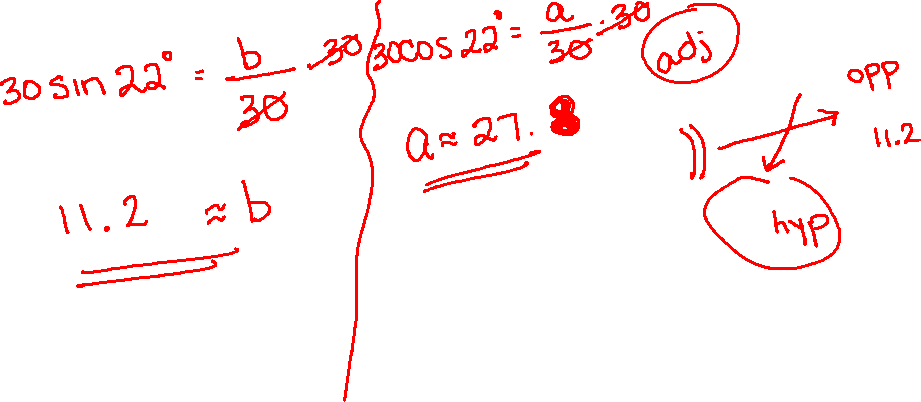 30 sin 22° = b/30 · 30
11.2 ≈ b
30cos 22° = a/30 · 30
a ≈ 27.8
adj
opp
11.2
hyp